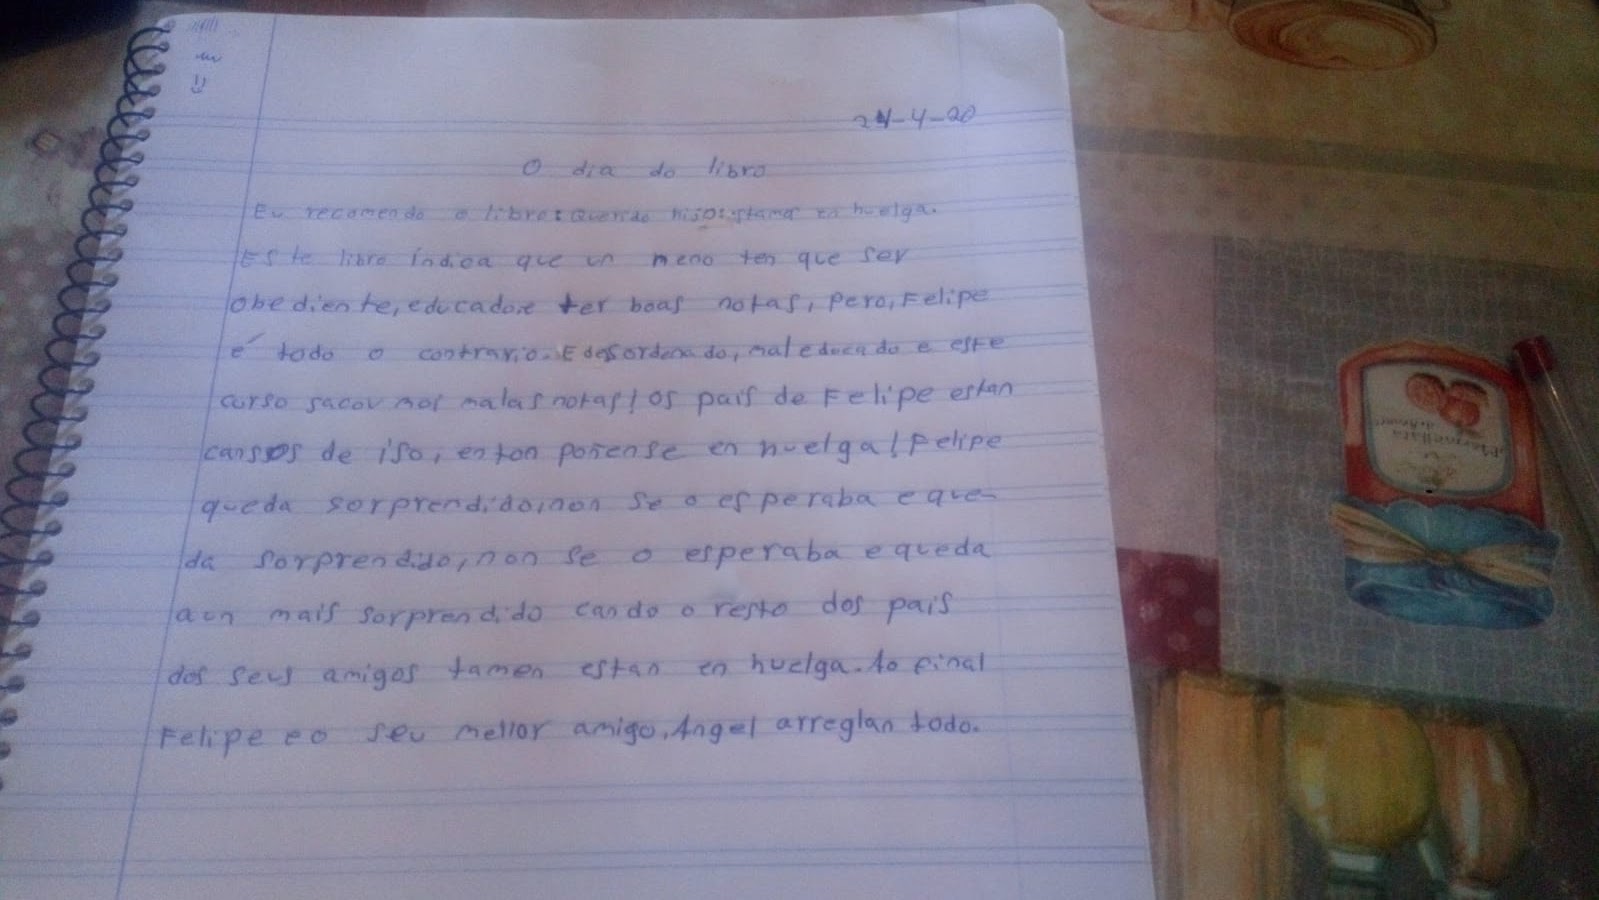 24-4-20
O dia do libro
Eu recomendo o libro: Querido hijo: estamos en huelga.
Este libro índica que un meno ten que ser
obediente, educado, e ter boas notas, pero, Felipe
é todo o contrario. E desordenado, mal educado e este
curso sacou moi malas notas! Os pais de Felipe estan
cansos de iso, enton poñense en huelga! Felipe
queda sorprendido, non se o esperaba e que-
da sorprendido, non se o esperaba e queda
aun mais sorprendido cando o resto dos pais
dos seus amigos tamen estan en huelga. Ao final
Felipe e o seu mellor amigo, Angel arreglan todo.
Mermellata